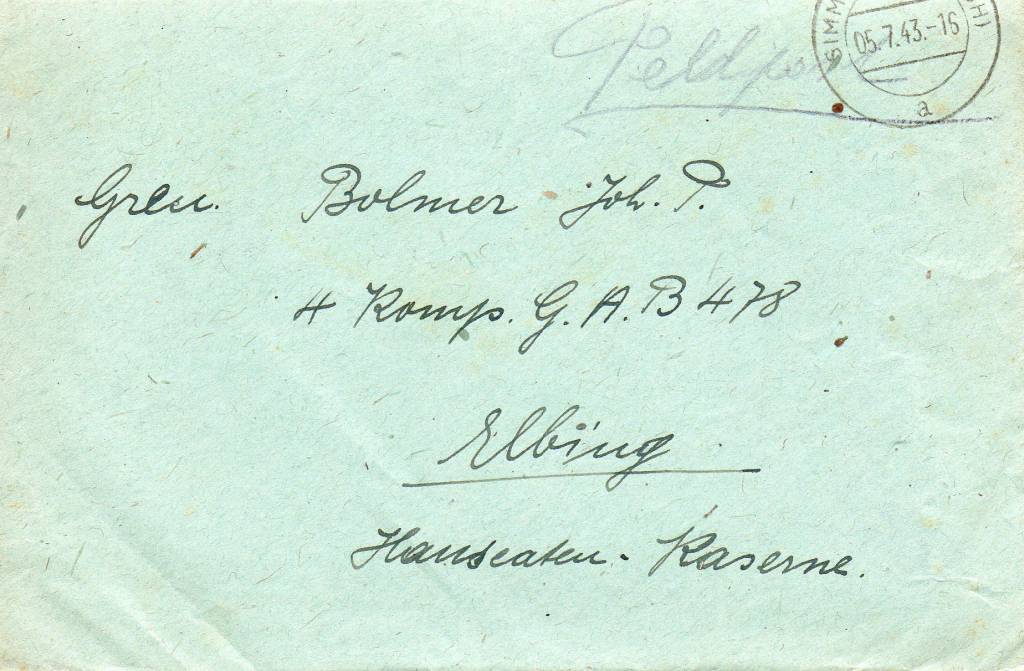 Feldpost
05.7.43.-16
a
Gren. Bolmer Joh. P.
4 Komp. G. A. B 478
Elbing
Hanseaten-Kaserne.